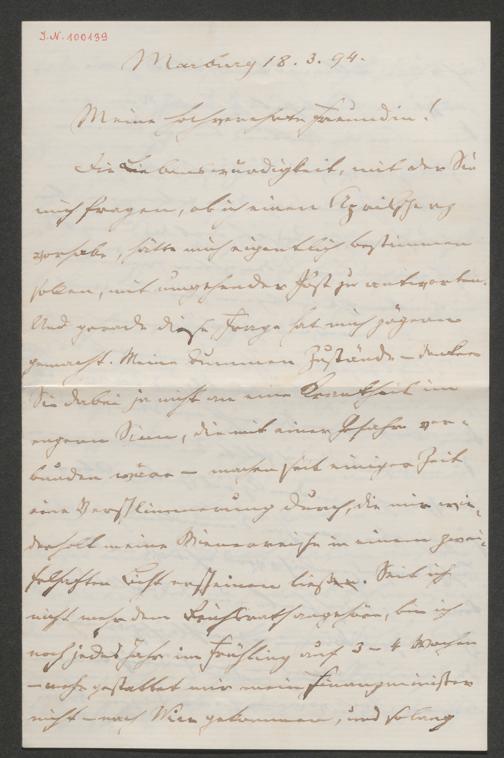 J.N. 100139
Marburg 18. 3. 94.
Meine hochverehrte Freundin!
Die Liebenswürdigkeit, mit der Sie
mich fragen, ob ich einen
vorhabe, hätte mich eigentlich bestimmen
sollen, mit umgehender Post zu antworten.
Und gerade diese Frage hat mich zögern
gemacht. Meine dummen Zustände – denken
Sie dabei ja nicht an eine Krankheit im
engern Sinn, die mit einer Gefahr ver-
bunden wäre – machen seit einiger Zeit
eine Verschlimmerung durch, die mir wie-
derholt meine Wienerreise in einem zwei-
felhaften Licht erscheinen ließen. Seit ich
nicht mehr dem Reichsrath angehöre, bin ich
noch jedes Jahr im Frühling auf 3 – 4 Wochen
– mehr gestattet mir mein Finanzminister
nicht – nach Wien gekommen, und so lang